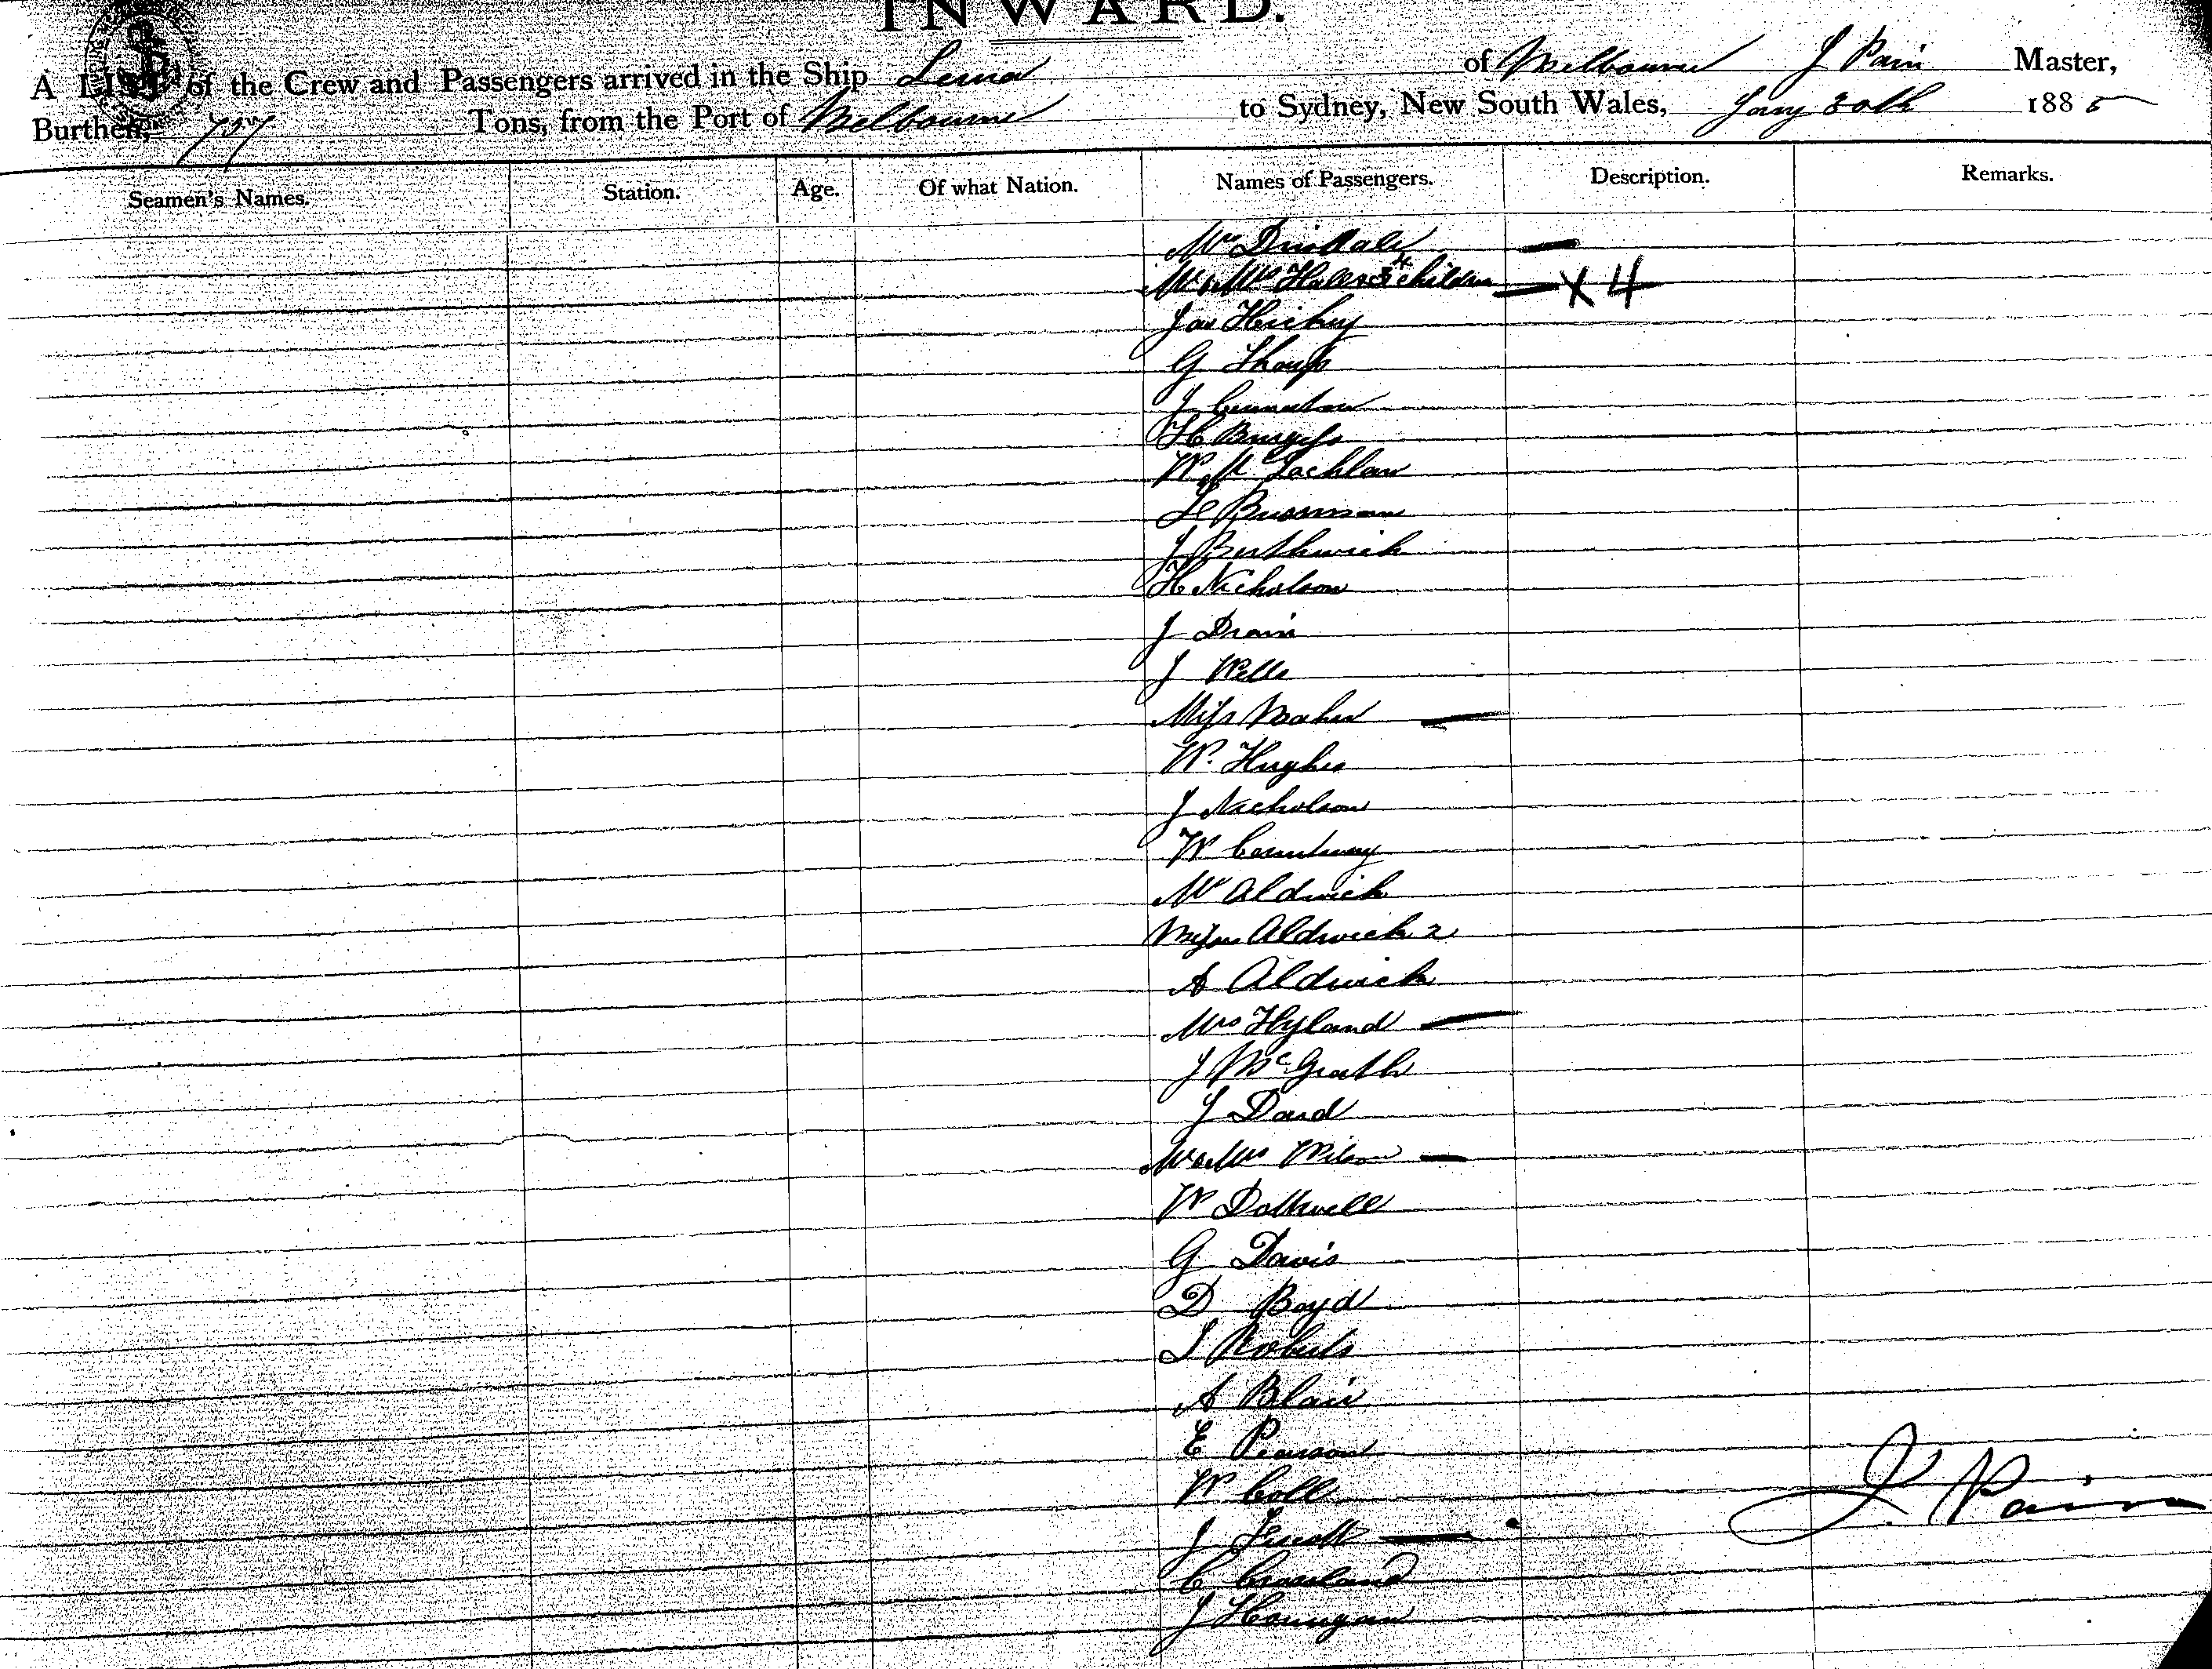 INWARD.
A LIST of the Crew and Passengers arrived in the Ship Lema of Melbourne J Pain Master,
Burthen, 757 Tons, from the Port of Melbourne to Sydney, New South Wales, Jany 30th 1885
Seamen's Names. Station. Age. Of what Nation. Names of Passengers. Description. Remarks.
Children X 4
Jas Hickey
G Tharp
J
H Burgess
W Mc Lachlan
J Berthwick
H Nicholson
J Drain
J Wells
Miss Maher
W. Hughes
J Nicholson
W
Mr Aldwick
Misses Aldwick 2
A Aldwick
Mrs Hyland
J McGrath
J Daud
Mr & Mrs Wilson
W Dothwell
G Davis
D Boyd
S Roberts
A Blair
E Pearson
W Coll
J
C Crossland
J Hannigan
J. Pain